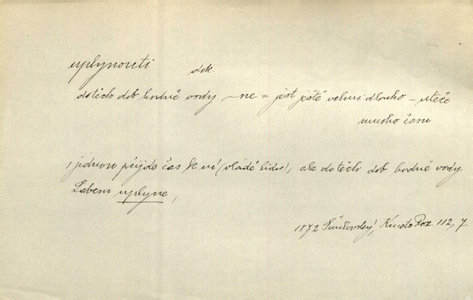 uplynouti dok
do těch dob hodně vody – ne = jest ještě velmi dlouho – uteče
mnoho času
jednou přijde čas k ní (vládě lidu), ale do těch dob hodně vody
Labem uplyne,
1872 112, 7